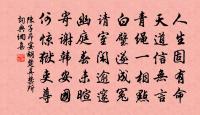 人生固有命
天道信無言
青蠅一相點
白璧遂成冤
請室閑逾邃
幽庭春未暄
寄謝韓安國
何驚獄吏尊
陳子昂宴胡楚真禁所
詞典網集